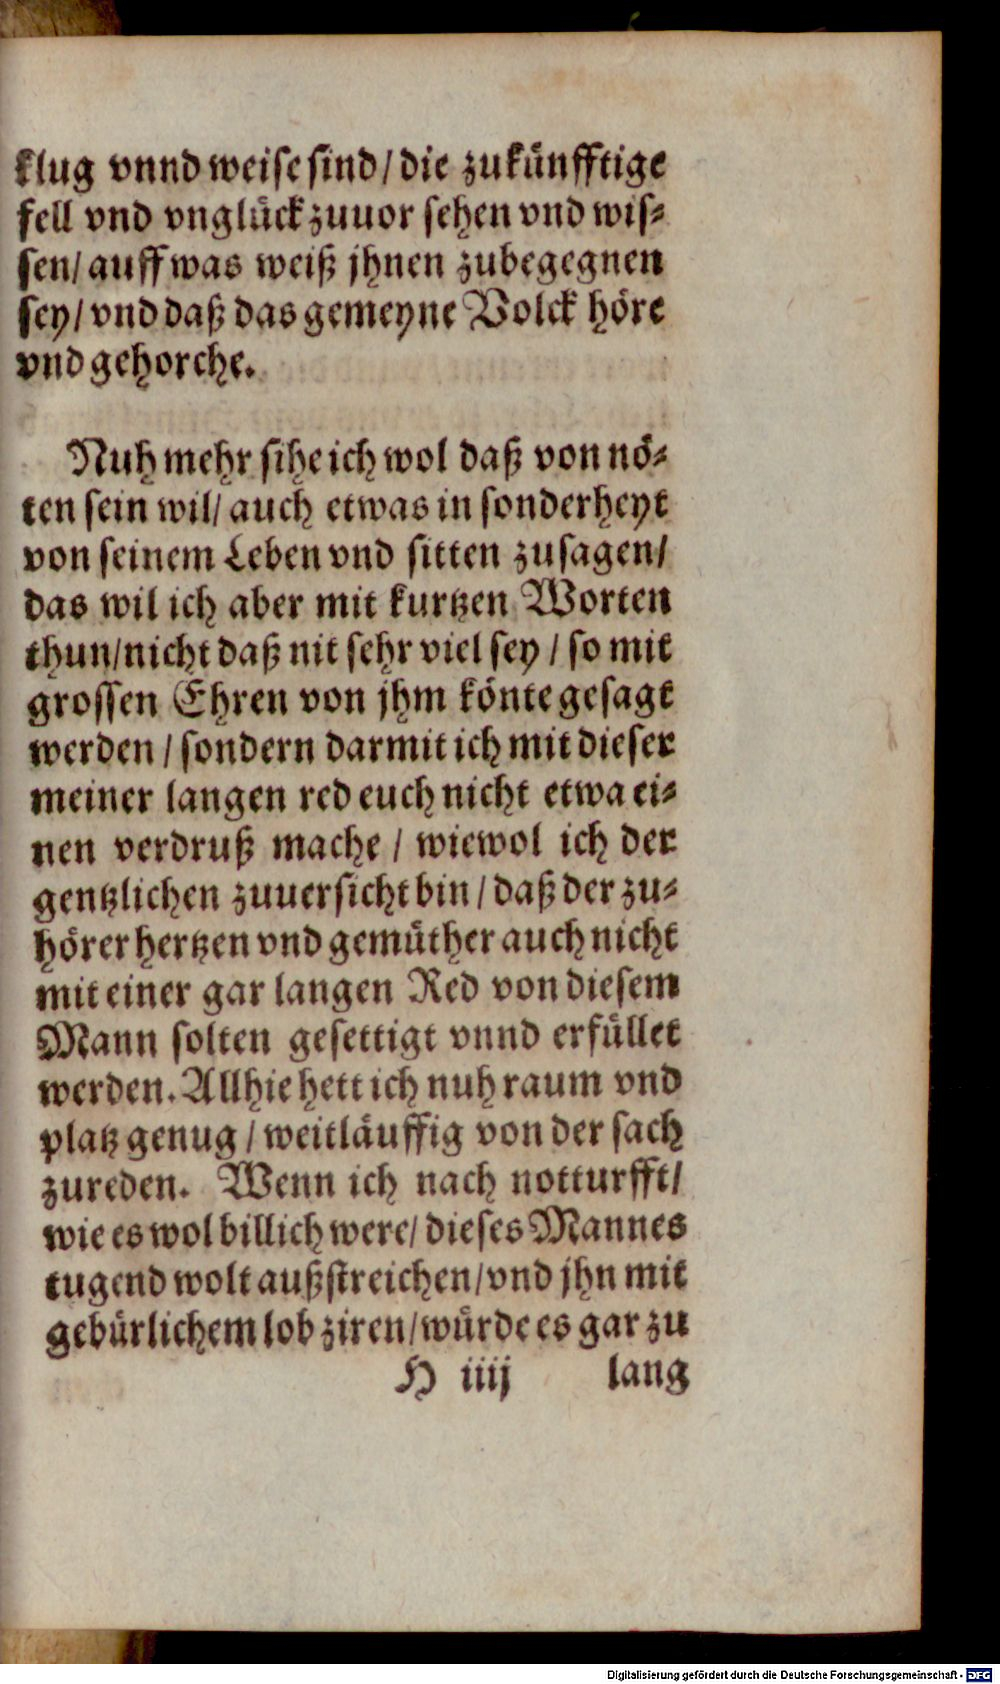 klug vnnd weise sind/ die zukünfftige
fell vnd vnglück zuuor sehen vnd wis⸗
sen/ auff was weiß jhnen zubegegnen
sey/ vnd daß das gemeyne Volck höre
vnd gehorche.
Nuh mehr sihe ich wol daß von nö⸗
ten sein wil/ auch etwas in sonderheyt
von seinem Leben vnd sitten zusagen/
das wil ich aber mit kurtzen Worten
thun/ nicht daß nit sehr viel sey / so mit
grossen Ehren von jhm könte gesagt
werden / sondern darmit ich mit dieser
meiner langen red euch nicht etwa ei⸗
nen verdruß mache / wiewol ich der
gentzlichen zuuersicht bin / daß der zu⸗
hörer hertzen vnd gemüther auch nicht
mit einer gar langen Red von diesem
Mann solten gesettigt vnnd erfüllet
werden. Allhie hett ich nuh raum vnd
platz genug / weitläuffig von der sach
zureden. Wenn ich nach notturfft/
wie es wol billich were/ dieses Mannes
tugend wolt außstreichen/ vnd jhn mit
gebürlichem lob ziren/ würde es gar zu
H iiij lang
Digitalisierung gefördert durch die Deutsche Forschungsgemeinschaft - DFG